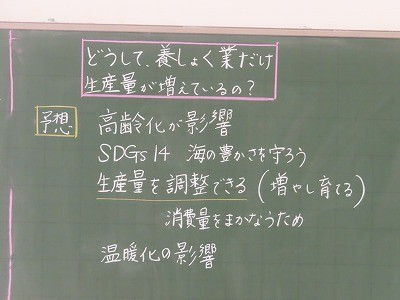 どうして、養しょく業だけ
生産量が増えているの?
予想 高齢化が影響
SDGs 14 海の豊かさを守ろう
生産量を調整できる(増やし育てる)
消費量をまかなうため
温暖化の影響